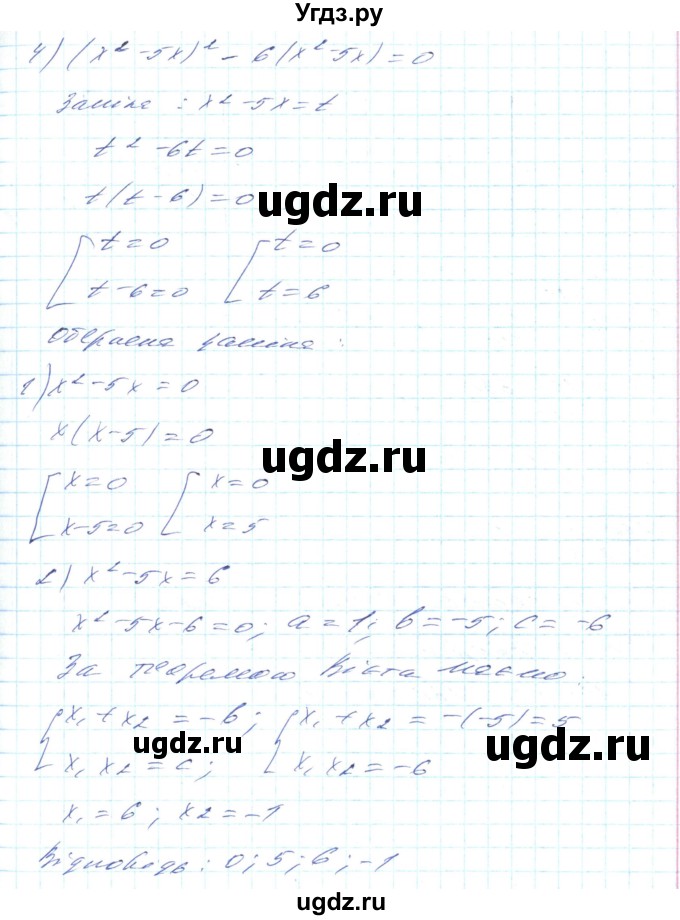 Угдз.ру
4) (x² - 5x)² - 6(x² - 5x) = 0
Заміна : x² - 5x = t
t² - 6t = 0
t(t - 6) = 0
ugdz.ru ugdz.ru
[ t = 0 [ t = 0
t - 6 = 0 t = 6
Обернена заміна :
1) x² - 5x = 0
x(x - 5) = 0
ugdz.ru ugdz.ru
[ x = 0 [ x = 0
x - 5 = 0 x = 5
2) x² - 5x = 6
x² - 5x - 6 = 0; a = 1; b = -5; c = -6
За теоремою Вієта маємо:
{ x₁ + x₂ = -b; { x₁ + x₂ = -(-5) = 5
ugdz.ru ugdz.ru
x₁ x₂ = c; x₁ x₂ = -6
x₁ = 6; x₂ = -1
Відповідь: 0; 5; 6; -1
ugdz.ru